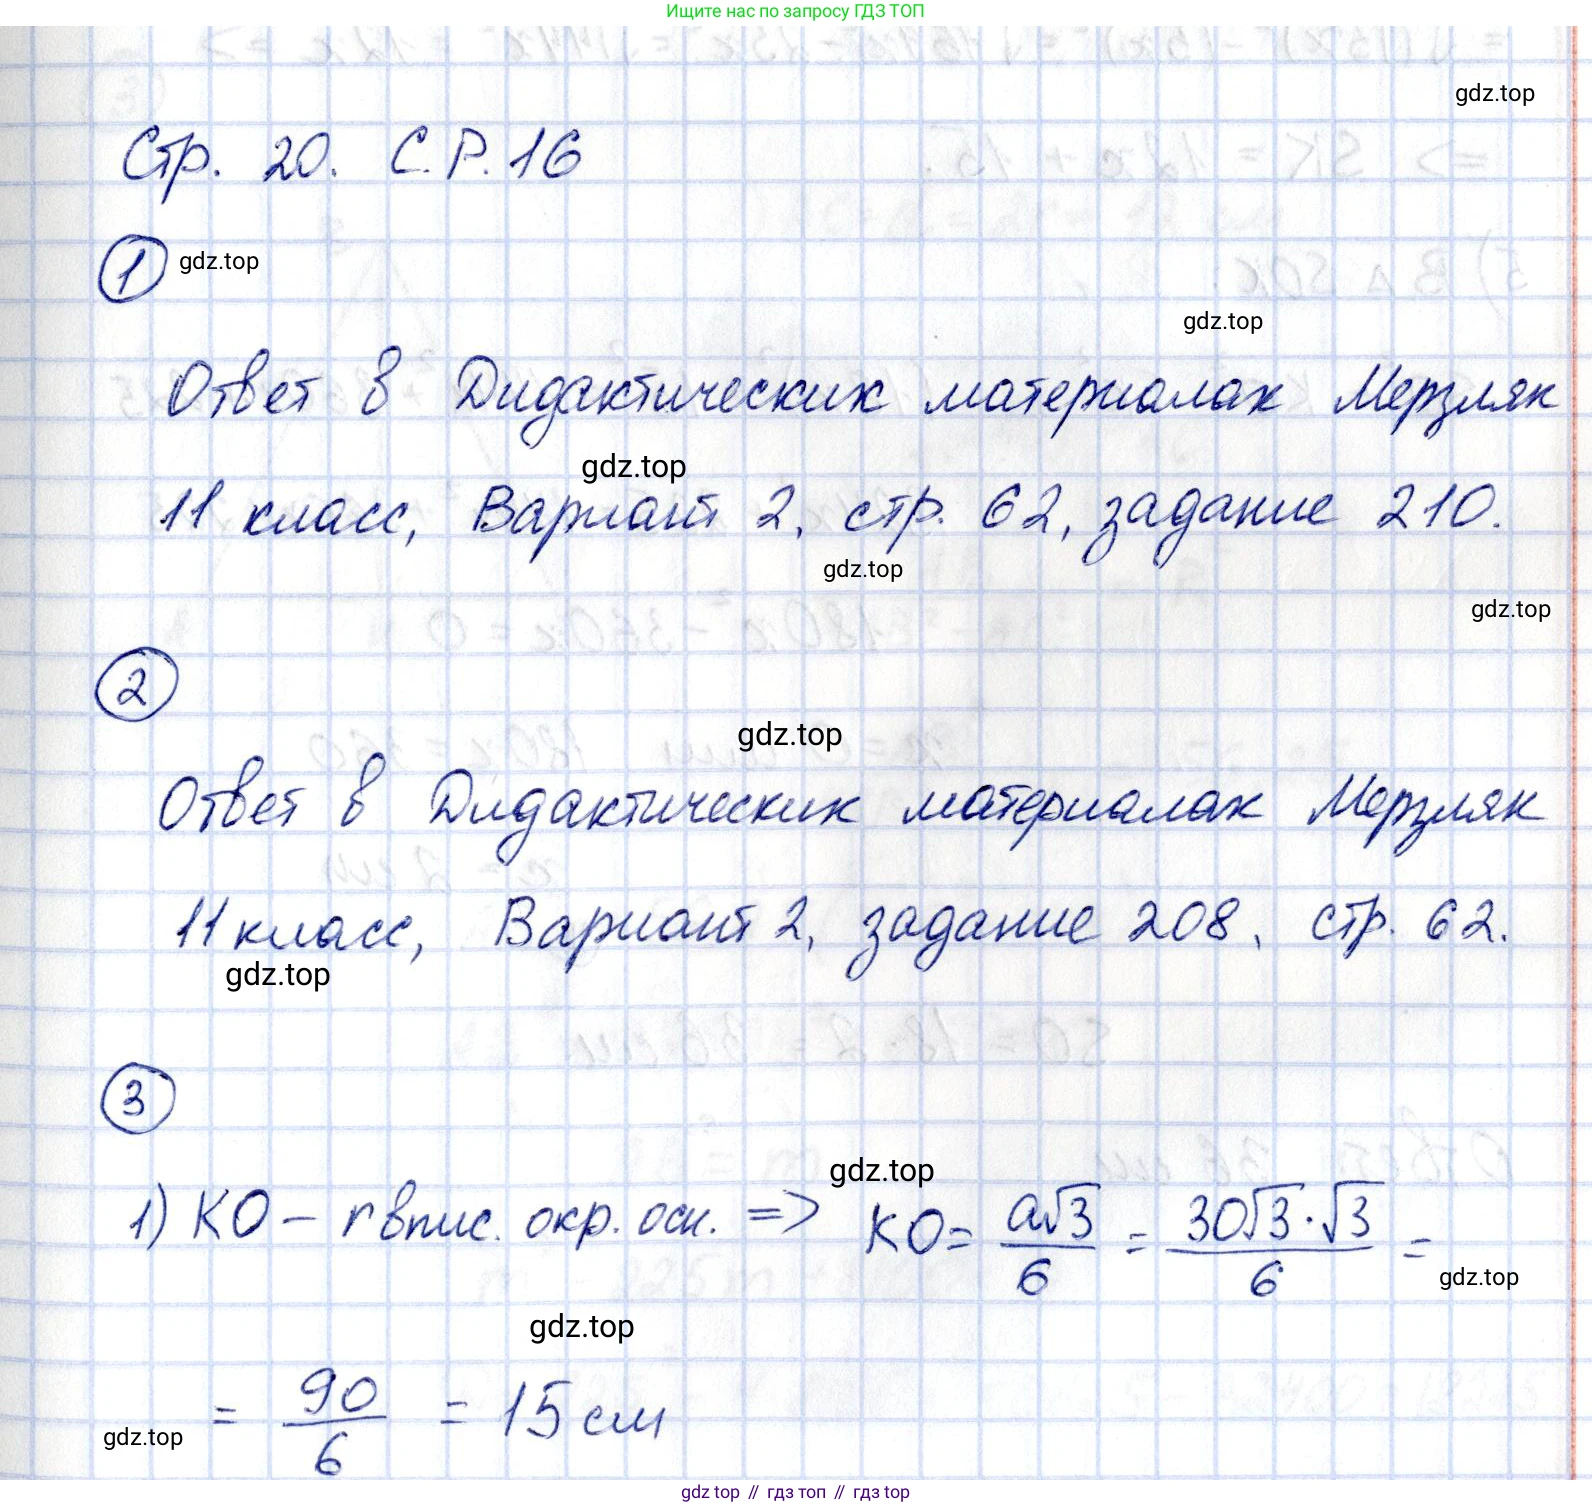 Ищите нас по запросу ГДЗ ТОП
gdz.top
Стр. 20. С.Р. 16
1 gdz.top
gdz.top
Ответ в Дидактических материалах Мерзляк
gdz.top
11 класс, Вариант 2, стр. 62, задание 210.
gdz.top
gdz.top
2
gdz.top
Ответ в Дидактических материалах Мерзляк
11 класс, Вариант 2, задание 208, стр. 62.
gdz.top
3
gdz.top
1) KO – r впис. окр. осн. => KO = a√3/6 = 30√3·√3/6 =
gdz.top
gdz.top
= 90/6 = 15 см
gdz.top
gdz.top // гдз топ // гдз.top